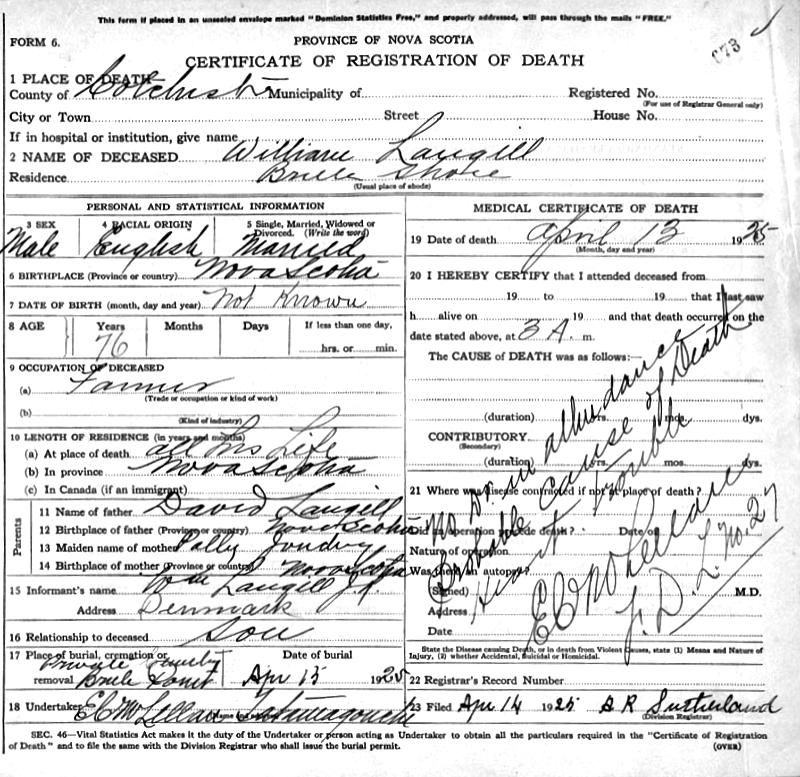 This form if placed in an unsealed envelope marked "Dominion Statistics Free," and properly addressed, will pass through the mails "FREE."
FORM 6.
PROVINCE OF NOVA SCOTIA
673
CERTIFICATE OF REGISTRATION OF DEATH
1 PLACE OF DEATH
County of Colchester Municipality of Registered No.
(For use of Registrar General only)
City or Town Street House No.
If in hospital or institution, give name
2 NAME OF DECEASED William Langill
Residence Brule Shore
(Usual place of abode)
PERSONAL AND STATISTICAL INFORMATION
3 SEX 4 RACIAL ORIGIN 5 Single, Married, Widowed or Divorced. (Write the word)
Male English Married
6 BIRTHPLACE (Province or country) Nova Scotia
7 DATE OF BIRTH (month, day and year) Not Known
8 AGE Years Months Days If less than one day,
76 hrs. or min.
9 OCCUPATION OF DECEASED
(a) Farmer
(Trade or occupation or kind of work)
(b)
(Kind of industry)
10 LENGTH OF RESIDENCE (in years and months)
(a) At place of death all his Life
(b) In province Nova Scotia
(c) In Canada (if an immigrant)
Parents
11 Name of father David Langill
12 Birthplace of father (Province or country) Nova Scotia
13 Maiden name of mother Sally
14 Birthplace of mother (Province or country) Nova Scotia
15 Informant's name Wm Langill Jr.
Address Denmark
16 Relationship to deceased Son
17 Place of burial, cremation or removal Date of burial
Private
Brule Apr 15 1925
18 Undertaker E C McLellan Tatamagouche
MEDICAL CERTIFICATE OF DEATH
19 Date of death April 13 1925
(Month, day and year)
20 I HEREBY CERTIFY that I attended deceased from
19 to 19 that I last saw
h alive on 19 and that death occurred on the
date stated above, at 3 A. m.
The CAUSE of DEATH was as follows:
(duration) yrs. mos. dys.
CONTRIBUTORY
(Secondary)
(duration) yrs. mos. dys.
No Dr. in attendance
Probable Cause of Death
Heart trouble
21 Where was disease contracted if not at place of death?
Did an operation precede death? Date of
Nature of operation
Was there an autopsy?
(Signed) M.D.
Address
Date
E C McLellan
L. No. 27
State the Disease causing Death, or in death from Violent Causes, state (1) Means and Nature of Injury, (2) whether Accidental, Suicidal or Homicidal.
22 Registrar's Record Number
23 Filed Apr 14 1925 Sutherland
(Division Registrar)
SEC. 46—Vital Statistics Act makes it the duty of the Undertaker or person acting as Undertaker to obtain all the particulars required in the "Certificate of Registration
of Death" and to file the same with the Division Registrar who shall issue the burial permit. (OVER)